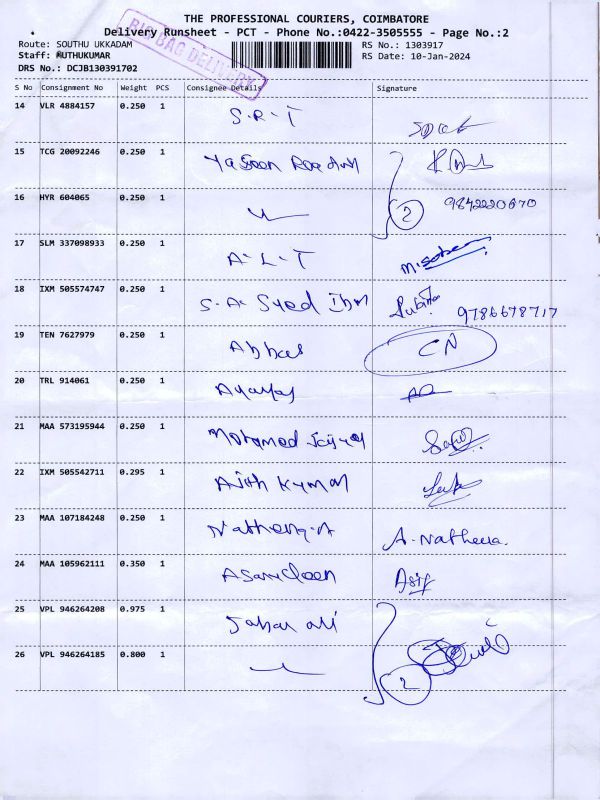 THE PROFESSIONAL COURIERS, COIMBATORE
Delivery Runsheet - PCT - Phone No.:0422-3505555 - Page No.:2
Route: SOUTHU UKKADAM
RS No.: 1303917
Staff: MUTHUKUMAR
RS Date: 10-Jan-2024
DRS No.: DCJB130391702
BIG BAG DELIVERY
S No Consignment No Weight PCS Consignee Details Signature
14 VLR 4884157 0.250 1 S.R.T
15 TCG 20092246 0.250 1
16 HYR 604065 0.250 1 2 9842220670
17 SLM 337098933 0.250 1 A.L.T
18 IXM 505574747 0.250 1 S.A. Syed Ibm 9786678717
19 TEN 7627979 0.250 1 Abbas CN
20 TRL 914061 0.250 1
21 MAA 573195944 0.250 1 Mohamed
22 IXM 505542711 0.295 1 Ajith Kumar
23 MAA 107184248 0.250 1 A. Natheera.
24 MAA 105962111 0.350 1 Asarudeen Asif
25 VPL 946264208 0.975 1 Jabar ali
26 VPL 946264185 0.800 1 2